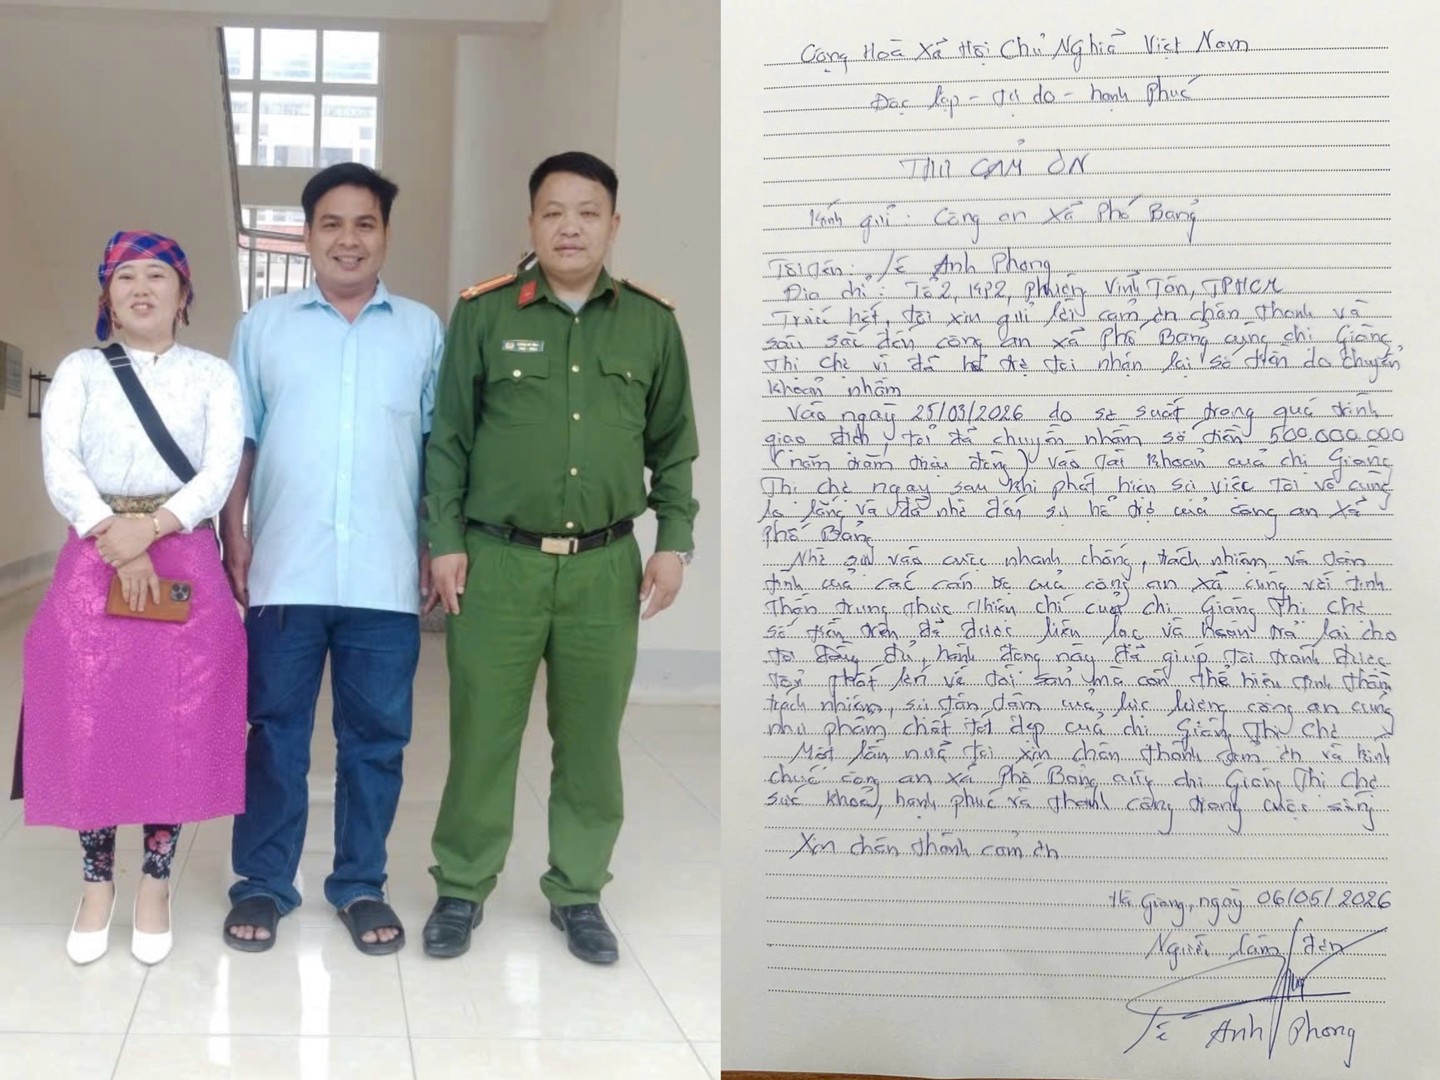 Cộng Hoà Xã Hội Chủ Nghĩa Việt Nam
Độc lập - tự do - hạnh Phúc
THƯ CẢM ƠN
Kính gửi: Công an xã Phố Bảng
Tôi tên: Tế Anh Phong
Địa chỉ: Tổ 2, KP2, Phường Vĩnh Tân, TPHCM
Trước hết, tôi xin gửi lời cảm ơn chân thành và
sâu sắc đến công an xã Phố Bảng cùng chị Giàng
Thị Chè vì đã hỗ trợ tôi nhận lại số tiền do chuyển
khoản nhầm
Vào ngày 25/03/2026 do sơ suất trong quá trình
giao dịch, tôi đã chuyển nhầm số tiền 500.000.000
(năm trăm triệu đồng) vào tài khoản của chị Giàng
Thị Chè ngay sau khi phát hiện sự việc tôi vô cùng
lo lắng và đã nhờ đến sự hỗ trợ của công an xã
Phố Bảng
Nhờ sự vào cuộc nhanh chóng, trách nhiệm và tận
tình của các cán bộ của công an xã cùng với tinh
thần trung thực thiện chí của chị Giàng Thị Chè
số tiền trên đã được liên lạc và hoàn trả lại cho
tôi đầy đủ, hành động này đã giúp tôi tránh được
tổn thất lớn về tài sản mà còn thể hiện tinh thần
trách nhiệm, sự tận tâm của lực lượng công an cũng
như phẩm chất tốt đẹp của chị Giàng Thị Chè
Một lần nữa tôi xin chân thành cảm ơn và kính
chúc công an xã Phố Bảng cùng chị Giàng Thị Chè
sức khoẻ, hạnh phúc và thành công trong cuộc sống
Xin chân thành cảm ơn
Hà Giang, ngày 06/05/2026
Người làm đơn
Tế Anh Phong